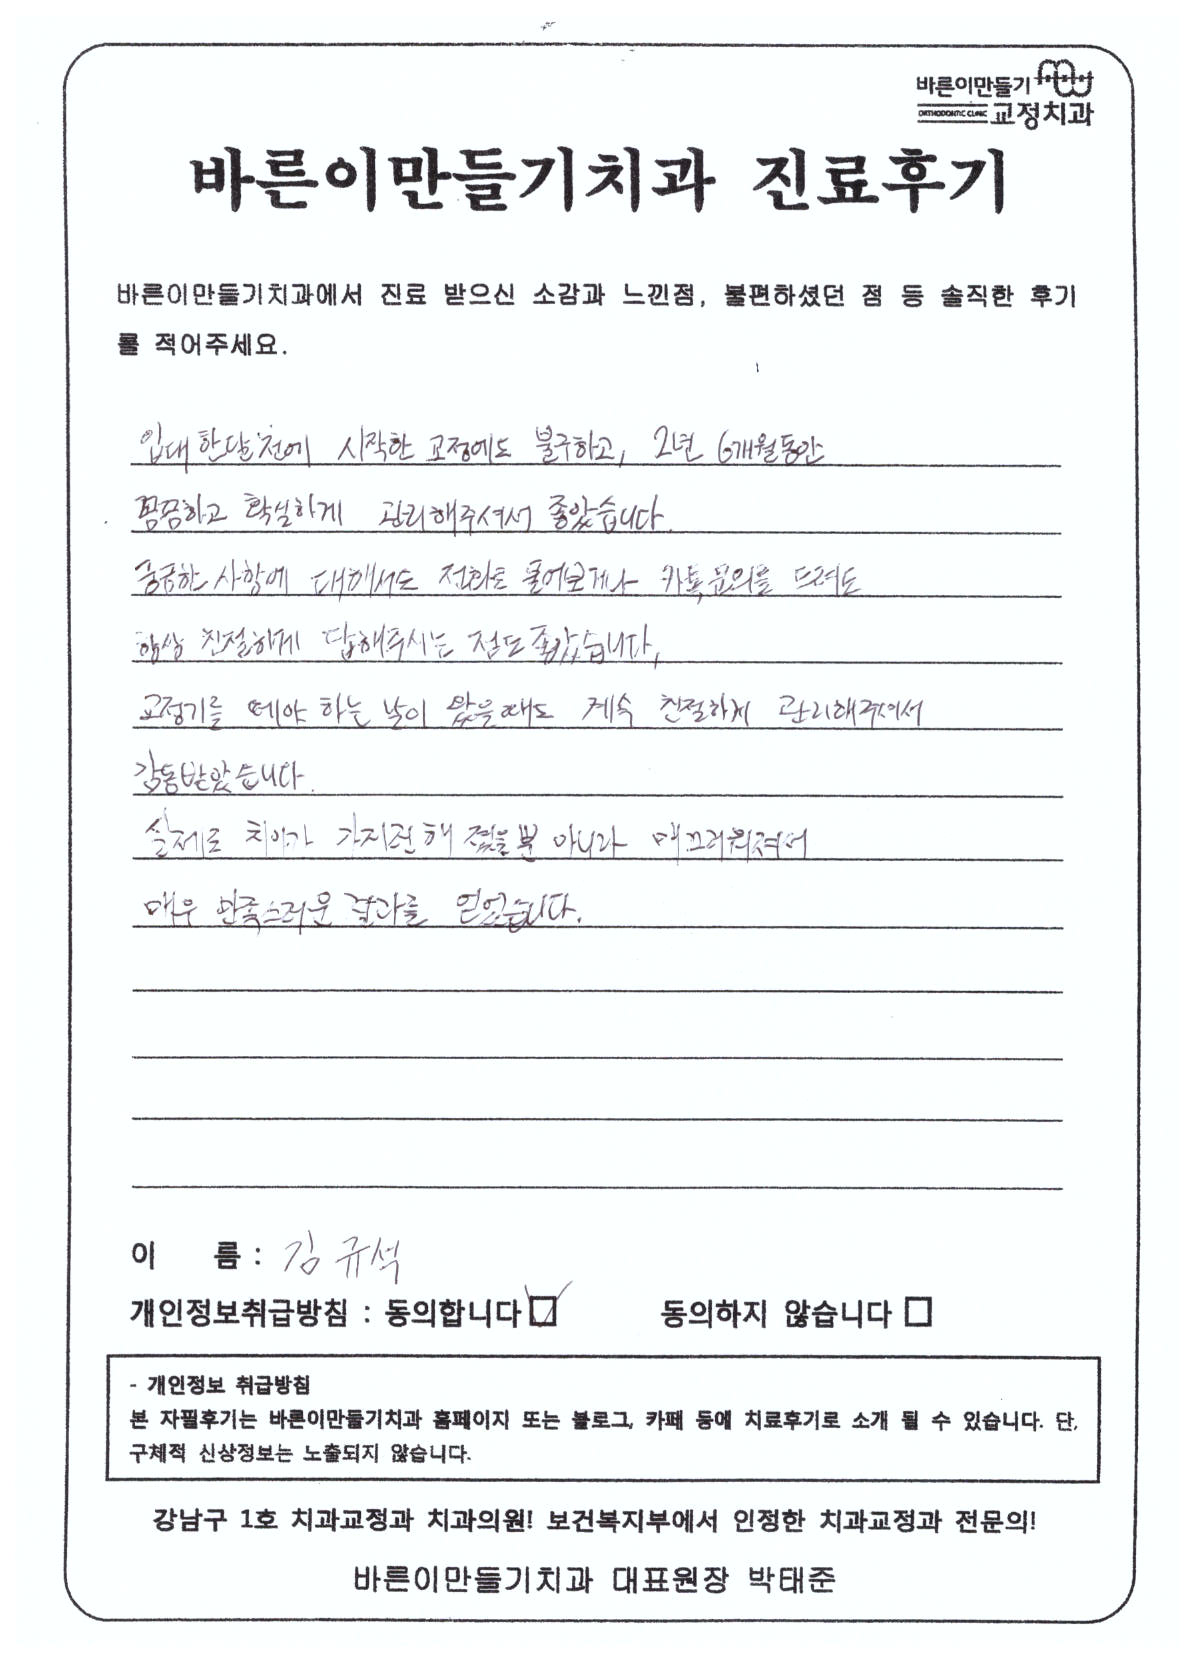 바른이만들기
ORTHODONTIC CLINIC 교정치과
바른이만들기치과 진료후기
바른이만들기치과에서 진료 받으신 소감과 느낀점, 불편하셨던 점 등 솔직한 후기
를 적어주세요.
입대 한달전에 시작한 교정에도 불구하고, 2년 6개월동안
꼼꼼하고 확실하게 관리해주셔서 좋았습니다.
궁금한 사항에 대해서도 전화로 물어보거나 카톡문의를 드려도
항상 친절하게 답해주시는 점도 좋았습니다.
교정기를 떼야 하는 날이 왔을때도 계속 친절하게 관리해주셔서
감동받았습니다.
실제로 치아가 가지런해 졌을뿐 아니라 매끄러워져서
매우 만족스러운 결과를 얻었습니다.
이 름 : 김규석
개인정보취급방침 : 동의합니다 ☑ 동의하지 않습니다 □
- 개인정보 취급방침
본 자필후기는 바른이만들기치과 홈페이지 또는 블로그, 카페 등에 치료후기로 소개 될 수 있습니다. 단,
구체적 신상정보는 노출되지 않습니다.
강남구 1호 치과교정과 치과의원! 보건복지부에서 인정한 치과교정과 전문의!
바른이만들기치과 대표원장 박태준